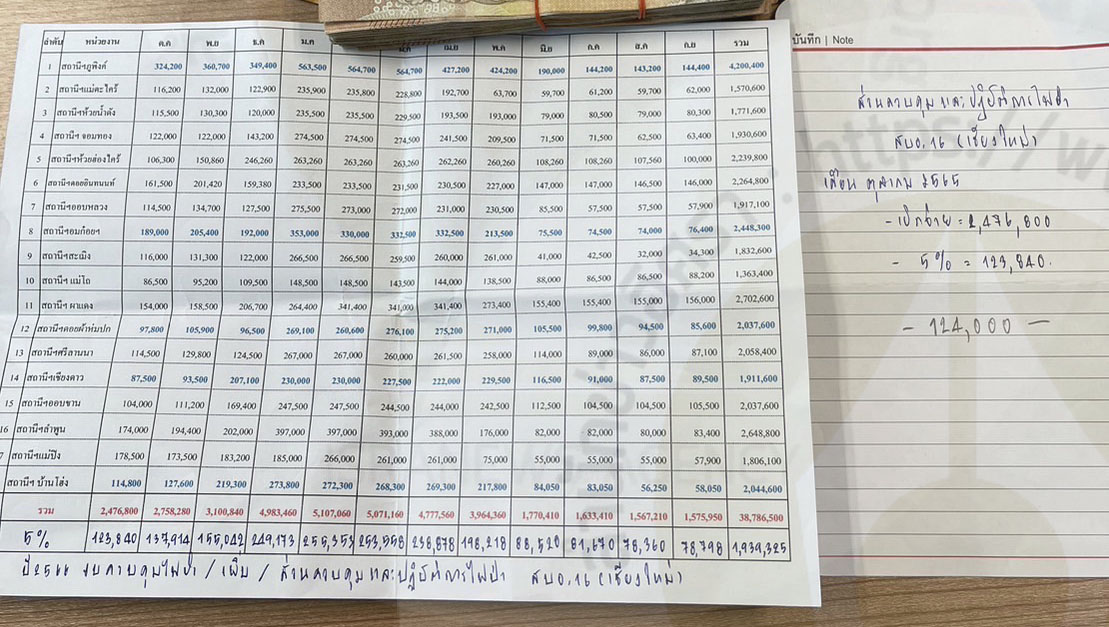 ลำดับ หน่วยงาน ต.ค พ.ย ธ.ค ม.ค ม.ค เม.ย พ.ค มิ.ย ก.ค ส.ค ก.ย รวม
1 สถานีฯภูพิงค์ 324,200 360,700 349,400 563,500 564,700 564,700 427,200 424,200 190,000 144,200 143,200 144,400 4,200,400
2 สถานีฯแม่ตะไคร้ 116,200 132,000 122,900 235,900 235,800 228,800 192,700 63,700 59,700 61,200 59,700 62,000 1,570,600
3 สถานีฯห้วยน้ำดัง 115,500 130,300 120,000 235,500 235,500 229,500 193,500 193,000 79,000 80,500 79,000 80,300 1,771,600
4 สถานีฯ จอมทอง 122,000 122,000 143,200 274,500 274,500 274,500 241,500 209,500 71,500 71,500 62,500 63,400 1,930,600
5 สถานีฯห้วยฮ่องไคร้ 106,300 150,860 246,260 263,260 263,260 263,260 262,260 260,260 108,260 108,260 107,560 100,000 2,239,800
6 สถานีฯดอยอินทนนท์ 161,500 201,420 159,380 233,500 233,500 231,500 230,500 227,000 147,000 147,000 146,500 146,000 2,264,800
7 สถานีฯออบหลวง 114,500 134,700 127,500 275,500 273,000 272,000 231,000 230,500 85,500 57,500 57,500 57,900 1,917,100
8 สถานีฯอมก๋อยฯ 189,000 205,400 192,000 353,000 330,000 332,500 332,500 213,500 75,500 74,500 74,000 76,400 2,448,300
9 สถานีฯสะเมิง 116,000 131,300 122,000 266,500 266,500 259,500 260,000 261,000 41,000 42,500 32,000 34,300 1,832,600
10 สถานีฯ แม่โถ 86,500 95,200 109,500 148,500 148,500 143,500 144,000 138,500 88,000 86,500 86,500 88,200 1,363,400
11 สถานีฯ ผาแดง 154,000 158,500 206,700 264,400 341,400 341,000 341,400 273,400 155,400 155,400 155,000 156,000 2,702,600
12 สถานีฯดอยผ้าห่มปก 97,800 105,900 96,500 269,100 260,600 276,100 275,200 271,000 105,500 99,800 94,500 85,600 2,037,600
13 สถานีฯศรีลานนา 114,500 129,800 124,500 267,000 267,000 260,000 261,500 258,000 114,000 89,000 86,000 87,100 2,058,400
14 สถานีฯเชียงดาว 87,500 93,500 207,100 230,000 230,000 227,500 222,000 229,500 116,500 91,000 87,500 89,500 1,911,600
15 สถานีฯออบขาน 104,000 111,200 169,400 247,500 247,500 244,500 244,000 242,500 112,500 104,500 104,500 105,500 2,037,600
16 สถานีฯลำพูน 174,000 194,400 202,000 397,000 397,000 393,000 388,000 176,000 82,000 82,000 80,000 83,400 2,648,800
7 สถานีฯแม่ปิง 178,500 173,500 183,200 185,000 266,000 261,000 261,000 75,000 55,000 55,000 55,000 57,900 1,806,100
สถานีฯ บ้านโฮ่ง 114,800 127,600 219,300 273,800 272,300 268,300 269,300 217,800 84,050 83,050 56,250 58,050 2,044,600
รวม 2,476,800 2,758,280 3,100,840 4,983,460 5,107,060 5,071,160 4,777,560 3,964,360 1,770,410 1,633,410 1,567,210 1,575,950 38,786,500
5% 123,840 137,914 155,042 249,173 255,353 253,558 238,878 198,218 88,520 81,670 78,360 78,798 1,939,325
ปี2566 งบควบคุมไฟป่า / เพิ่ม / ส่วนควบคุมและปฏิบัติการไฟป่า สบอ.16 (เชียงใหม่)
บันทึก | Note
ส่วนควบคุมและปฏิบัติการไฟป่า
สบอ.16 (เชียงใหม่)
เดือน ตุลาคม 2565
- เบิกจ่าย = 2,476,800
- 5% = 123,840.
- 124,000 -